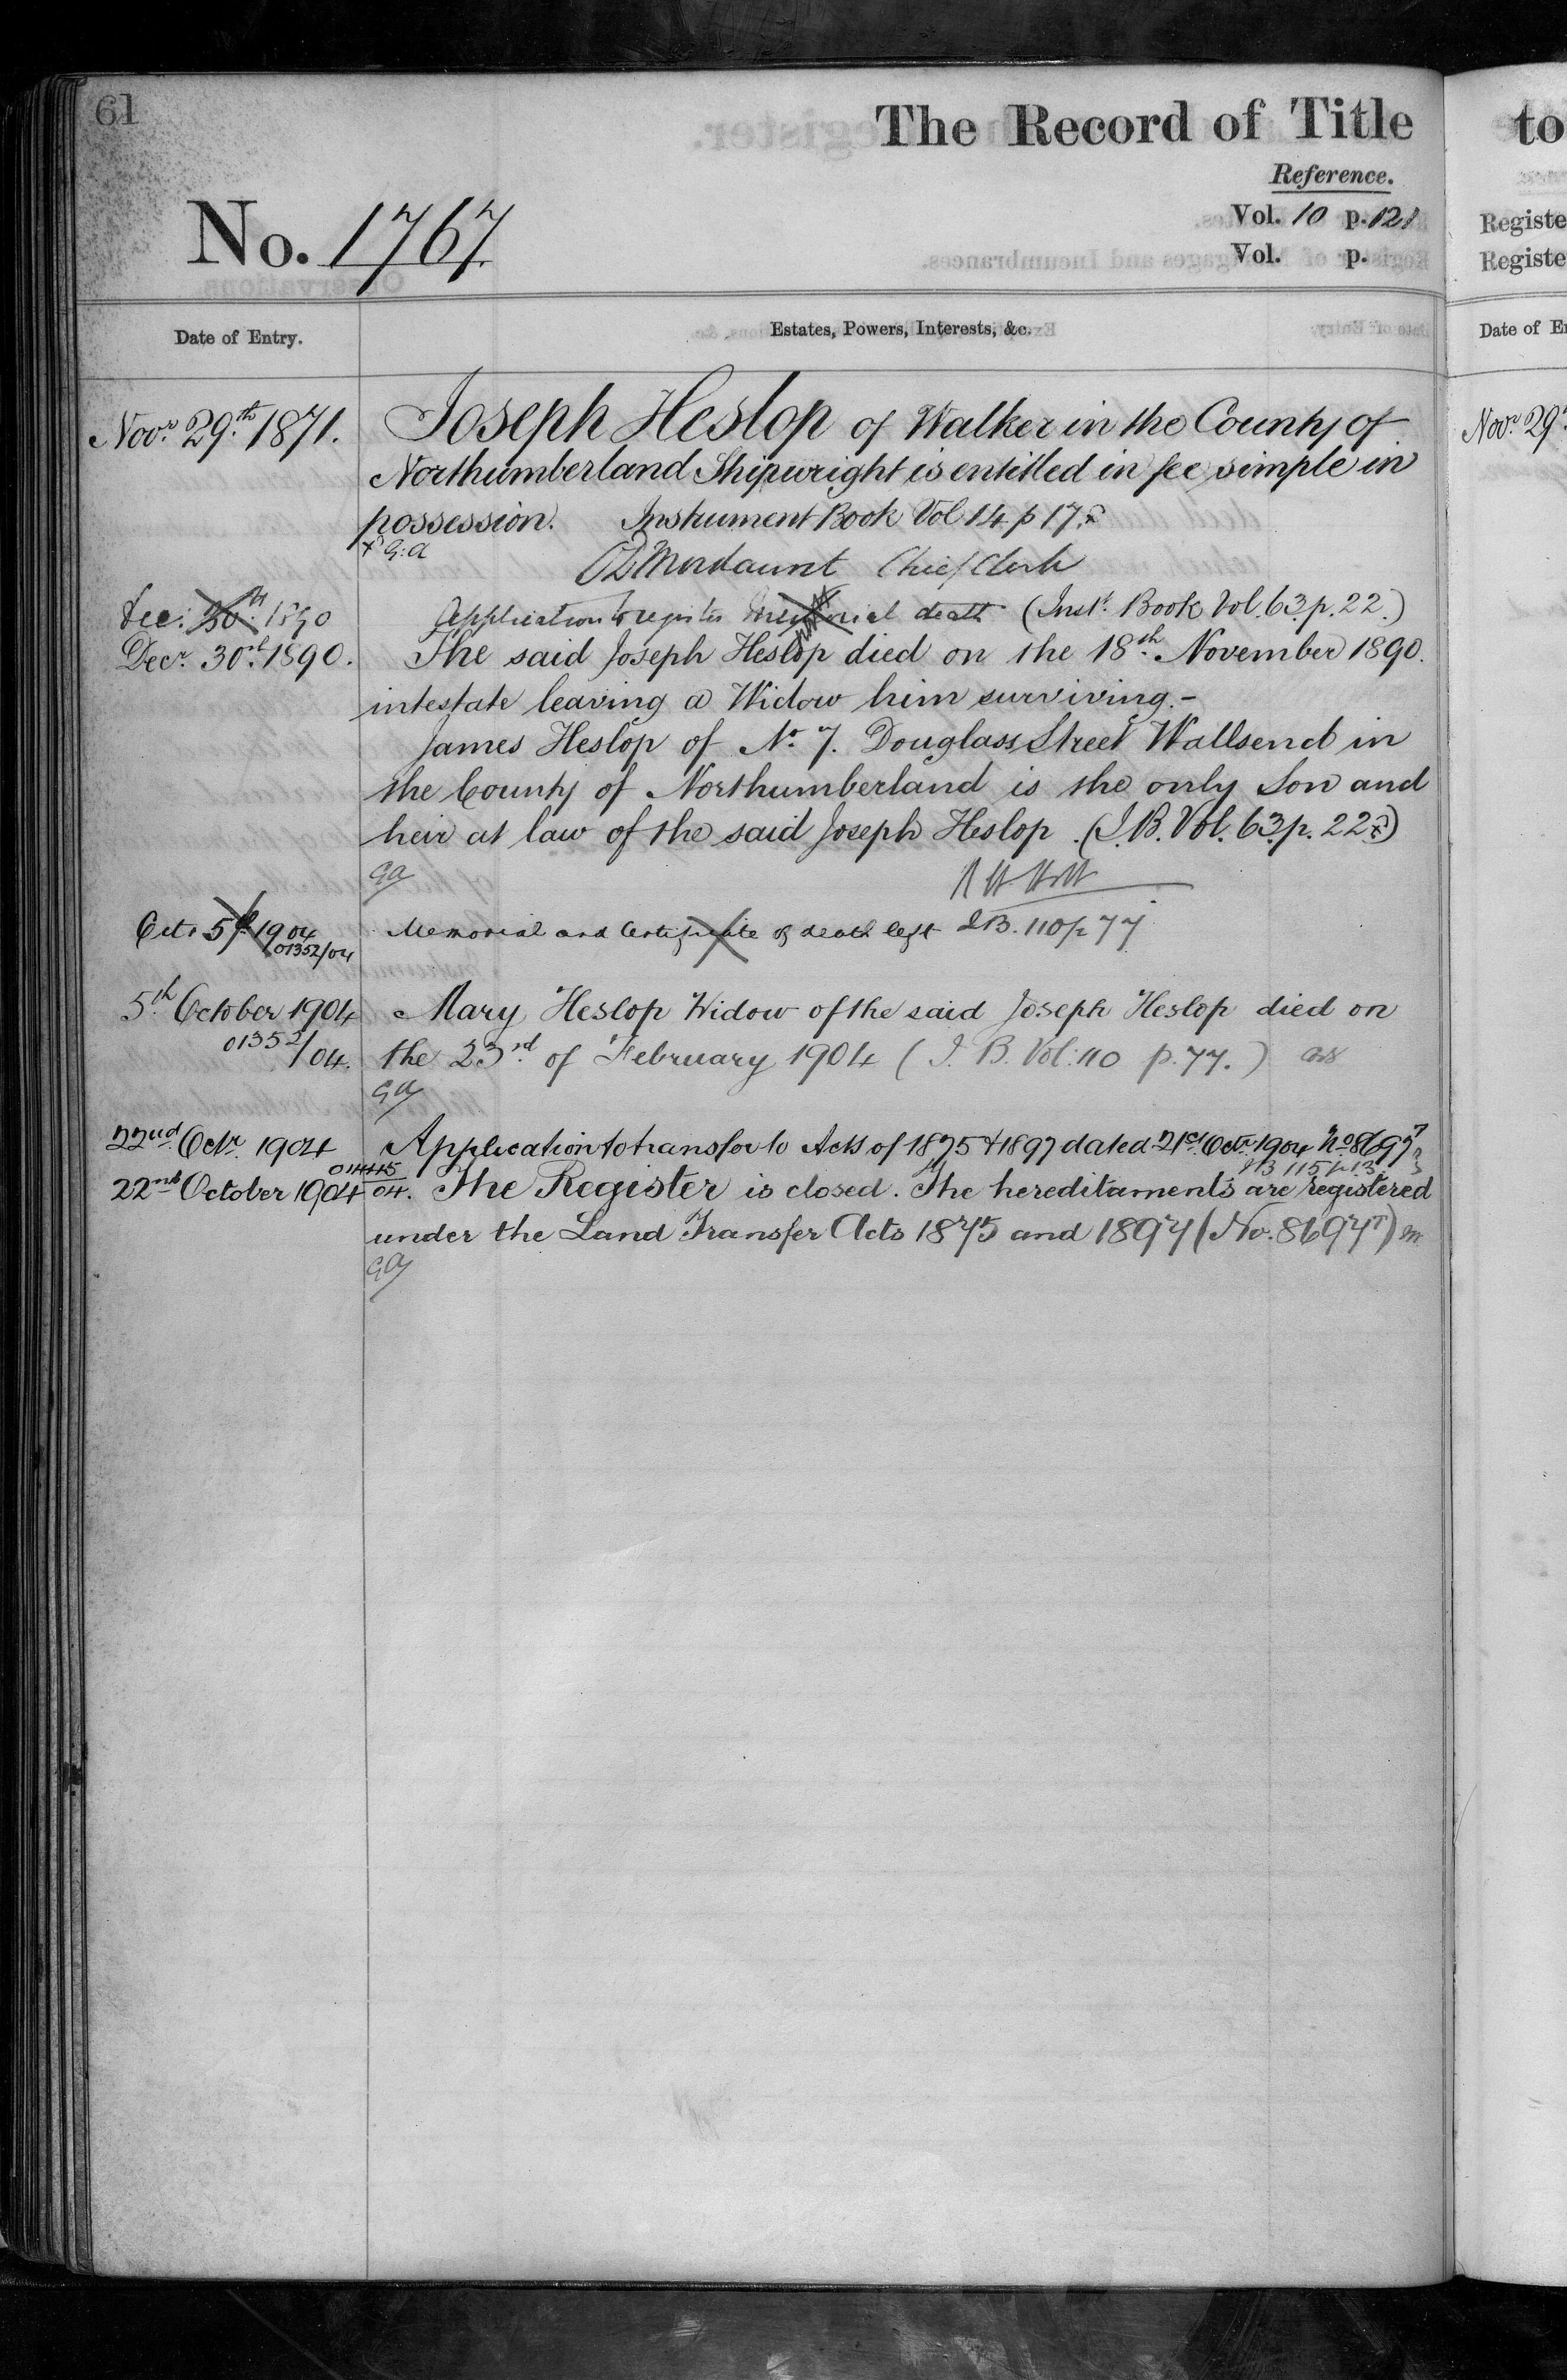 61
The Record of Title
Reference.
No. 1767
Vol. 10 p. 121
Vol. p.
Date of Entry.
Estates, Powers, Interests, &c.
Novr. 29th 1871. Joseph Heslop of Walker in the County of
Northumberland Shipwright is entitled in fee simple in
possession. Instrument Book Vol 14 p 17.
x G.A
Mordaunt Chief Clerk
Dec: 30th 1890 Application to register death (Inst. Book Vol. 63. p. 22.)
Decr. 30th 1890. The said Joseph Heslop died on the 18th November 1890.
intestate leaving a Widow him surviving.-
James Heslop of No. 7. Douglass Street Wallsend in
the County of Northumberland is the only Son and
heir at law of the said Joseph Heslop. (I.B. Vol. 63. p. 22 x)
GA
Oct. 5th 1904 Memorial and Certificate of death left IB. 110 p 77
01352/04
5th October 1904 Mary Heslop Widow of the said Joseph Heslop died on
01352/04. the 23rd of February 1904 (I. B. Vol: 110 p. 77.)
GA
22nd Octr. 1904 Application to transfer to Acts of 1875 & 1897 dated 21st Octr. 1904 No 8697
IB 115 p 13
22nd October 1904 01445/04. The Register is closed. The hereditaments are registered
under the Land Transfer Acts 1875 and 1897 (No. 8697)
GA
to
Registe
Registe
Date of E
Novr. 29